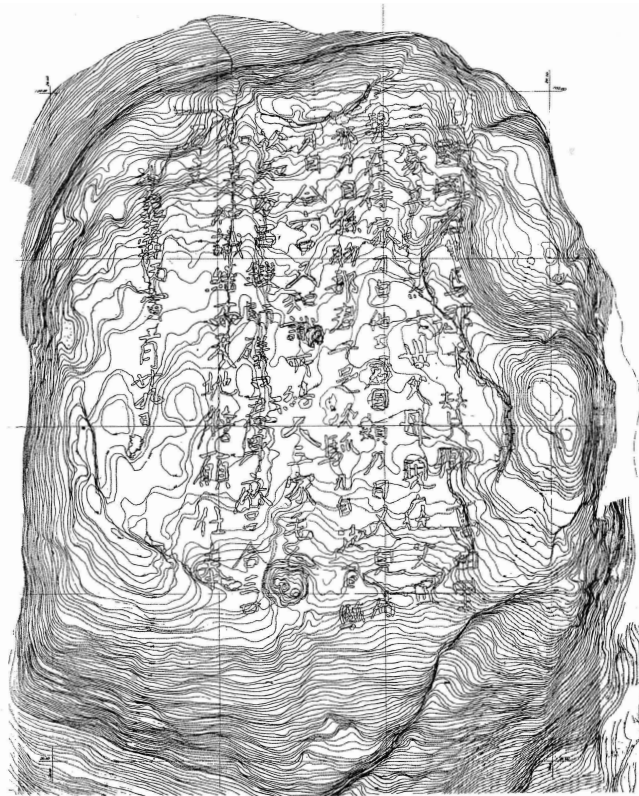 上野国群馬郡下賛郷高田里
三家子為七世父母現在父母
現在侍家刀自他田君目頬刀自又児加
那刀自孫物部君午足次蹄刀自次乙蹄
刀自合六口又知識所結人三家毛人
次知万呂鍛師礒マ君身麻呂合三口
如是知識結而天地誓願仕奉
石文
神亀三年丙寅二月廿九日